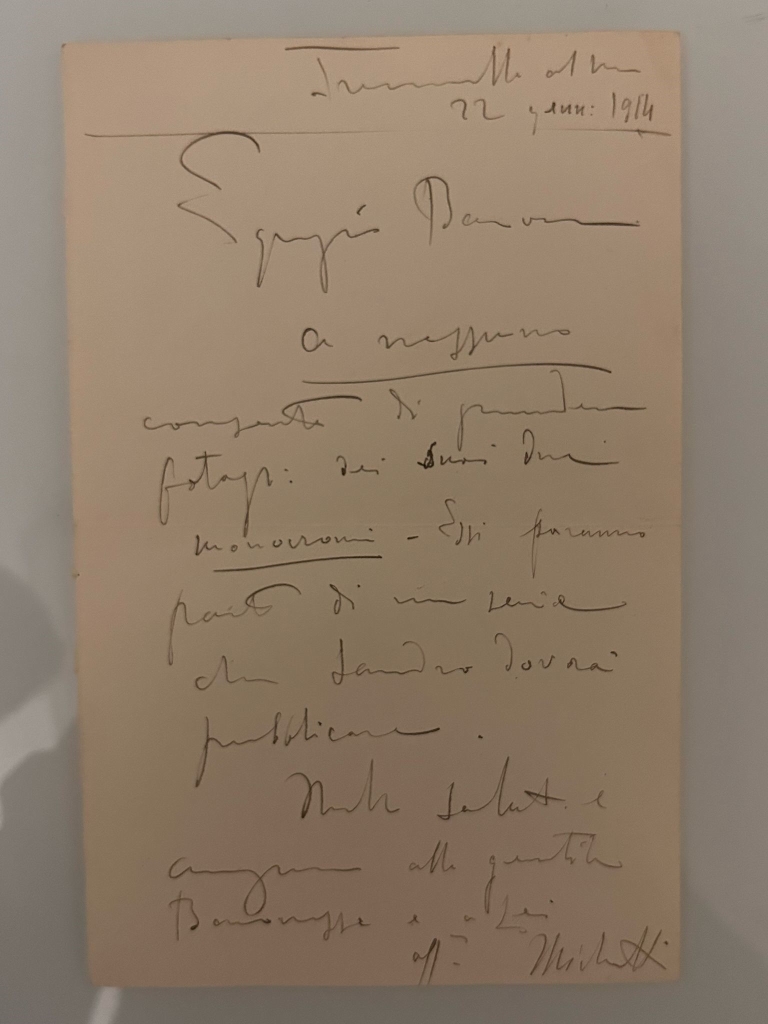 Francavilla al Mare
22 genn: 1914
Egregio Barone
a nessuno
consente di prendere
fotogr: dei suoi due
monocromi - Essi faranno
parte di una serie
che Sandro dovrà
pubblicare.
Molti saluti e
auguri alla gentile
Baronessa e a Lei
aff:
Michetti